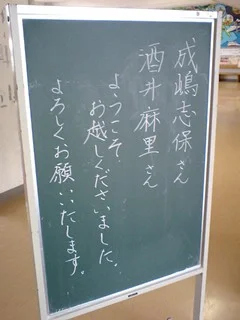 成嶋志保さん
酒井麻里さん
ようこそ
お越しくださいました。
よろしくお願いいたします。